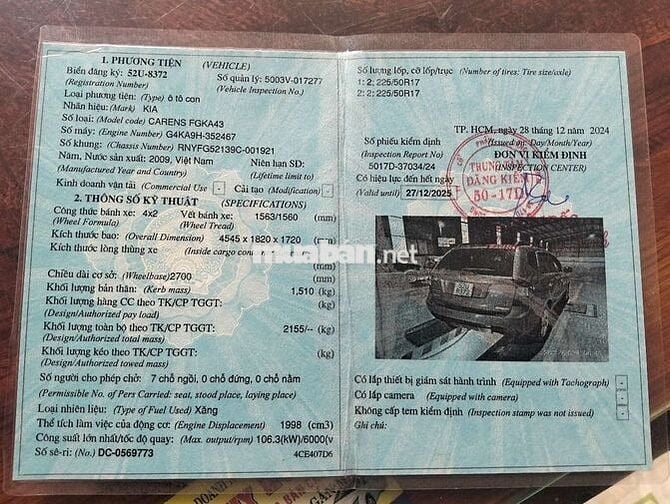 1. PHƯƠNG TIỆN (VEHICLE)
Biển đăng ký: 52U-8372 Số quản lý: 5003V-017277
(Registration Number) (Vehicle Inspection No.)
Loại phương tiện: (Type) ô tô con
Nhãn hiệu: (Mark) KIA
Số loại: (Model code) CARENS FGKA43
Số máy: (Engine Number) G4KA9H-352467
Số khung: (Chassis Number) RNYFG52139C-001921
Năm, Nước sản xuất: 2009, Việt Nam Niên hạn SD:
(Manufactured Year and Country) (Lifetime limit to)
Kinh doanh vận tải (Commercial Use) - Cải tạo (Modification) -
2. THÔNG SỐ KỸ THUẬT (SPECIFICATIONS)
Công thức bánh xe: 4x2 Vết bánh xe: 1563/1560 (mm)
(Wheel Formula) (Wheel Tread)
Kích thước bao: (Overall Dimension) 4545 x 1820 x 1720 (mm)
Kích thước lòng thùng xe (Inside cargo
(mm)
Chiều dài cơ sở: (Wheelbase) 2700 (mm)
Khối lượng bản thân: (Kerb mass) 1,510 (kg)
Khối lượng hàng CC theo TK/CP TGGT: (kg)
(Design/Authorized pay load)
Khối lượng toàn bộ theo TK/CP TGGT: 2155/-- (kg)
(Design/Authorized total mass)
Khối lượng kéo theo TK/CP TGGT: (kg)
(Design/Authorized towed mass)
Số người cho phép chở: 7 chỗ ngồi, 0 chỗ đứng, 0 chỗ nằm
(Permissible No. of Pers Carried: seat, stood place, laying place)
Loại nhiên liệu: (Type of Fuel Used) Xăng
Thể tích làm việc của động cơ: (Engine Displacement) 1998 (cm3)
Công suất lớn nhất/tốc độ quay: (Max. output/rpm) 106.3(kW)/6000(v
Số sê-ri: (No.) DC-0569773 4CE407D6
Số lượng lốp, cỡ lốp/trục (Number of tires: Tire size/axle)
1: 2; 225/50R17
2: 2; 225/50R17
TP. HCM, ngày 28 tháng 12 năm 2024
Số phiếu kiểm định (Issued on: Day/Month/Year)
(Inspection Report No) ĐƠN VỊ KIỂM ĐỊNH
5017D-37034/24 (INSPECTION CENTER)
Có hiệu lực đến hết ngày
(Valid until) 27/12/2025
TRUNG TÂM
ĐĂNG KIỂM
50-17D
muaban.net
Có lắp thiết bị giám sát hành trình (Equipped with Tachograph) -
Có lắp camera (Equipped with camera) -
Không cấp tem kiểm định (Inspection stamp was not issued) -
Ghi chú: